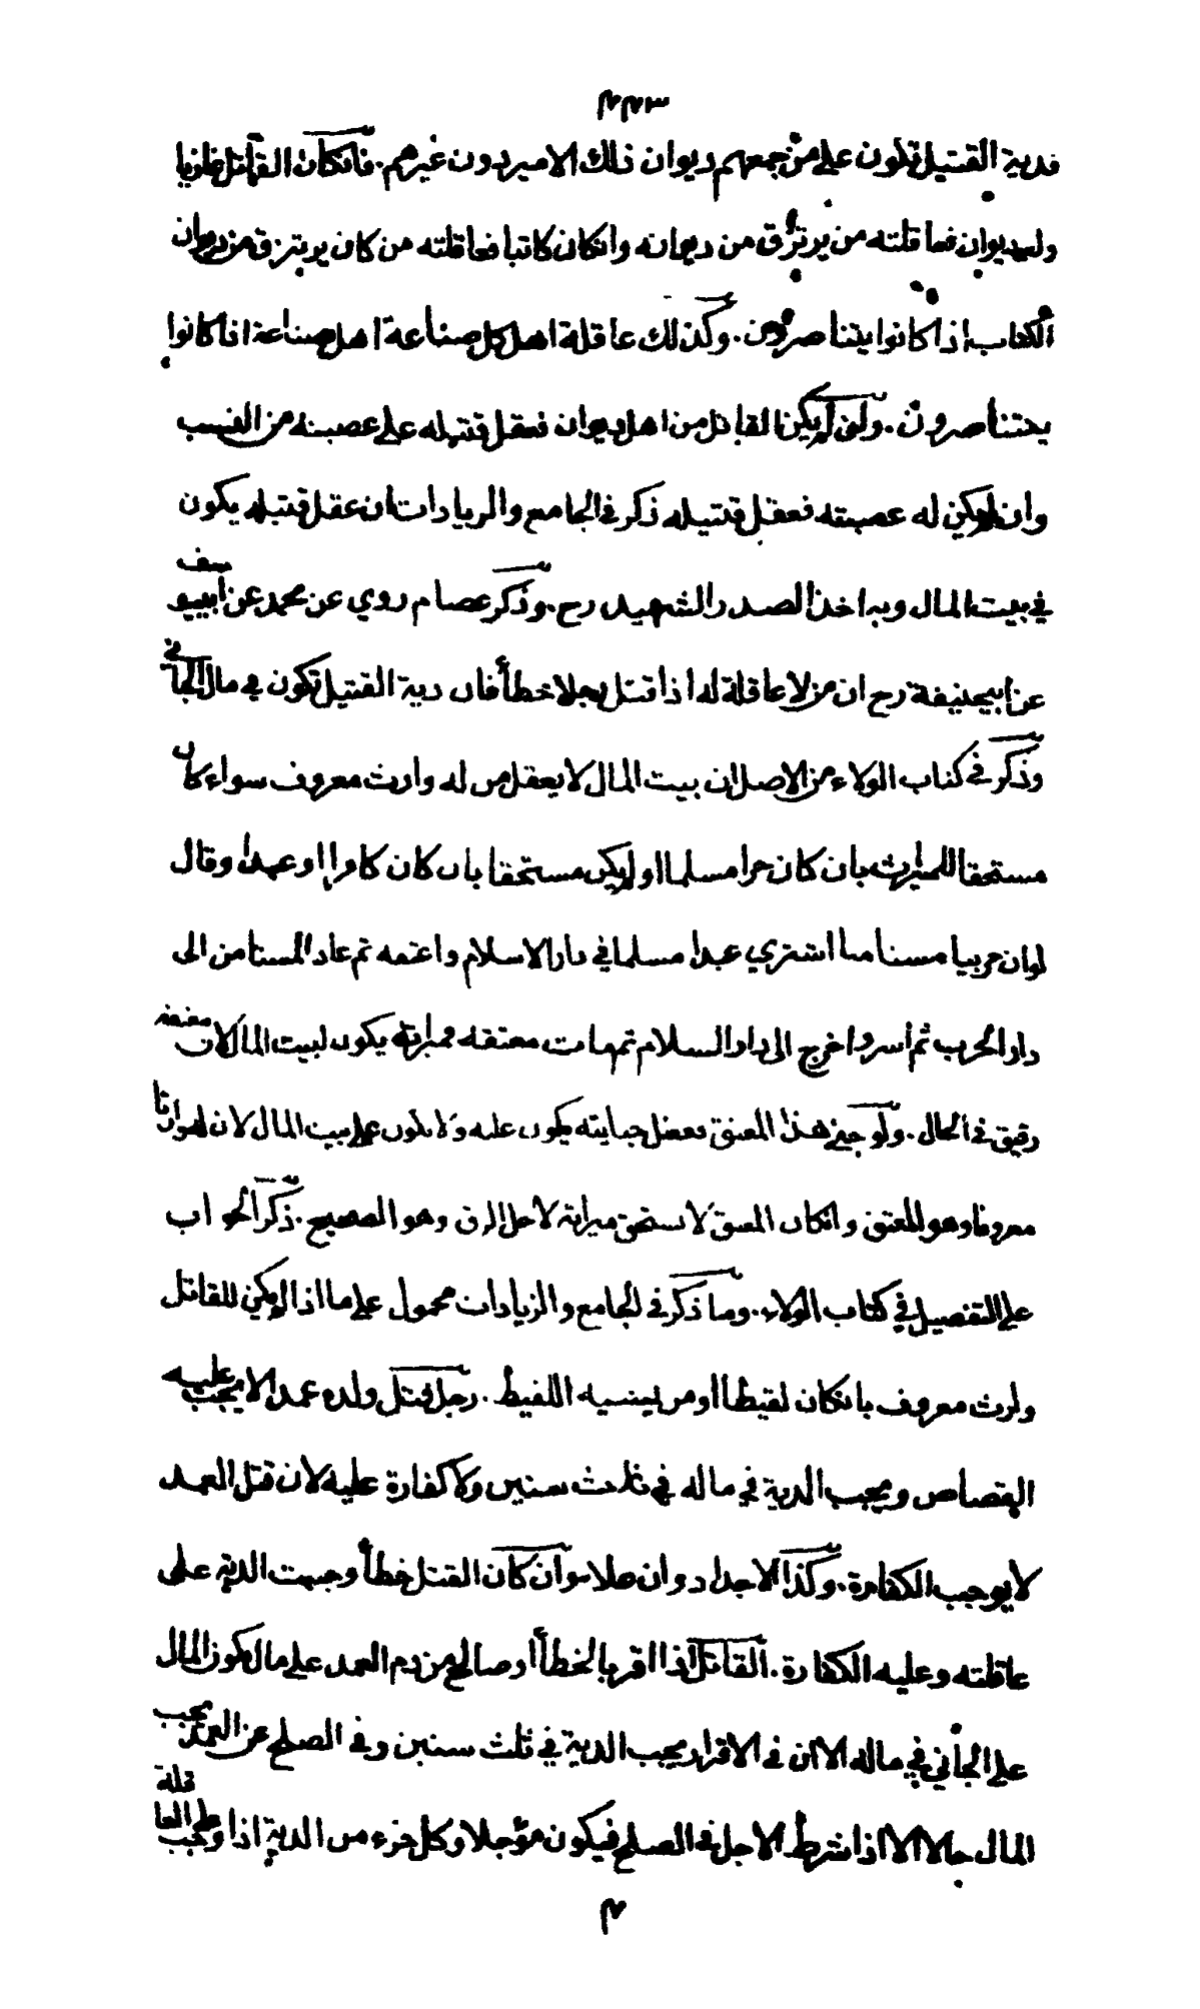 ٢٢٣
فدية القتيل تكون على من جمعهم ديوان ذلك الامير دون غيرهم. فانكان القاتل غازيا
وله ديوان فعاقلته من يرتزق من ديوانه وانكان كاتبا فعاقلته من كان يرتزق من ديوان
الكتاب اذا كانوا يتناصرون. وكذلك عاقلة اهل كل صناعة اهل صناعة اذا كانوا
يتناصرون. ولو لم يكن القاتل من اهل ديوان فعقل قتيله على عصبته من النسب
وان لم يكن له عصبته فعقل قتيله ذكر في الجامع والزيادات ان عقل قتيله يكون
في بيت المال وبه اخذ الصدر الشهيد رح. وذكر عصام روي عن محمد عن ابييوسف
عن ابيحنيفة رح ان من لا عاقلة له اذا قتل رجلا خطأ فان دية القتيل تكون في مال الجاني
وذكر في كتاب الولاء من الاصل ان بيت المال لا يعقل من له وارث معروف سواء كان
مستحقا للميراث بان كان حرا مسلما او لم يكن مستحقا بان كان كافرا او عبدا وقال
لو ان حربيا مستامنا اشتري عبدا مسلما في دار الاسلام واعتقه ثم عاد المستامن الى
دار الحرب ثم اسر واخرج الى دار السلام ثم مات معتقه فميراثه يكون لبيت المال لان معتقه
رقيق في الحال. ولو جنى هذا المعتق فعقل جنايته يكون عليه ولا يكون على بيت المال لان له وارثا
معروفا وهو المعتق وانكان المعتق لا يستحق ميراثه لاجل الرق وهو الصحيح. ذكر الجواب
على التفصيل في كتاب الولاء. وما ذكر في الجامع والزيادات محمول على ما اذا لم يكن للقاتل
وارث معروف بانكان لقيطا او من يسبه اللقيط. رجل قتل ولده عمدا لا يجب عليه
القصاص ويجب الدية في ماله في ثلاث سنين ولا كفارة عليه لان قتل العمد
لا يوجب الكفارة. وكذا الاجداد وان علوا وان كان القتل خطأ وجبت الدية على
عاقلته وعليه الكفارة. القاتل اذا اقر بالخطأ او صالح من دم العمد على مال يكون المال
على الجاني في ماله الا ان في الاقرار يجب الدية في ثلث سنين وفي الصلح عن العمد يجب
المال حالا الا اذا شرط الاجل في الصلح فيكون مؤجلا وكل جزء من الدية اذا وجب على العاقلة